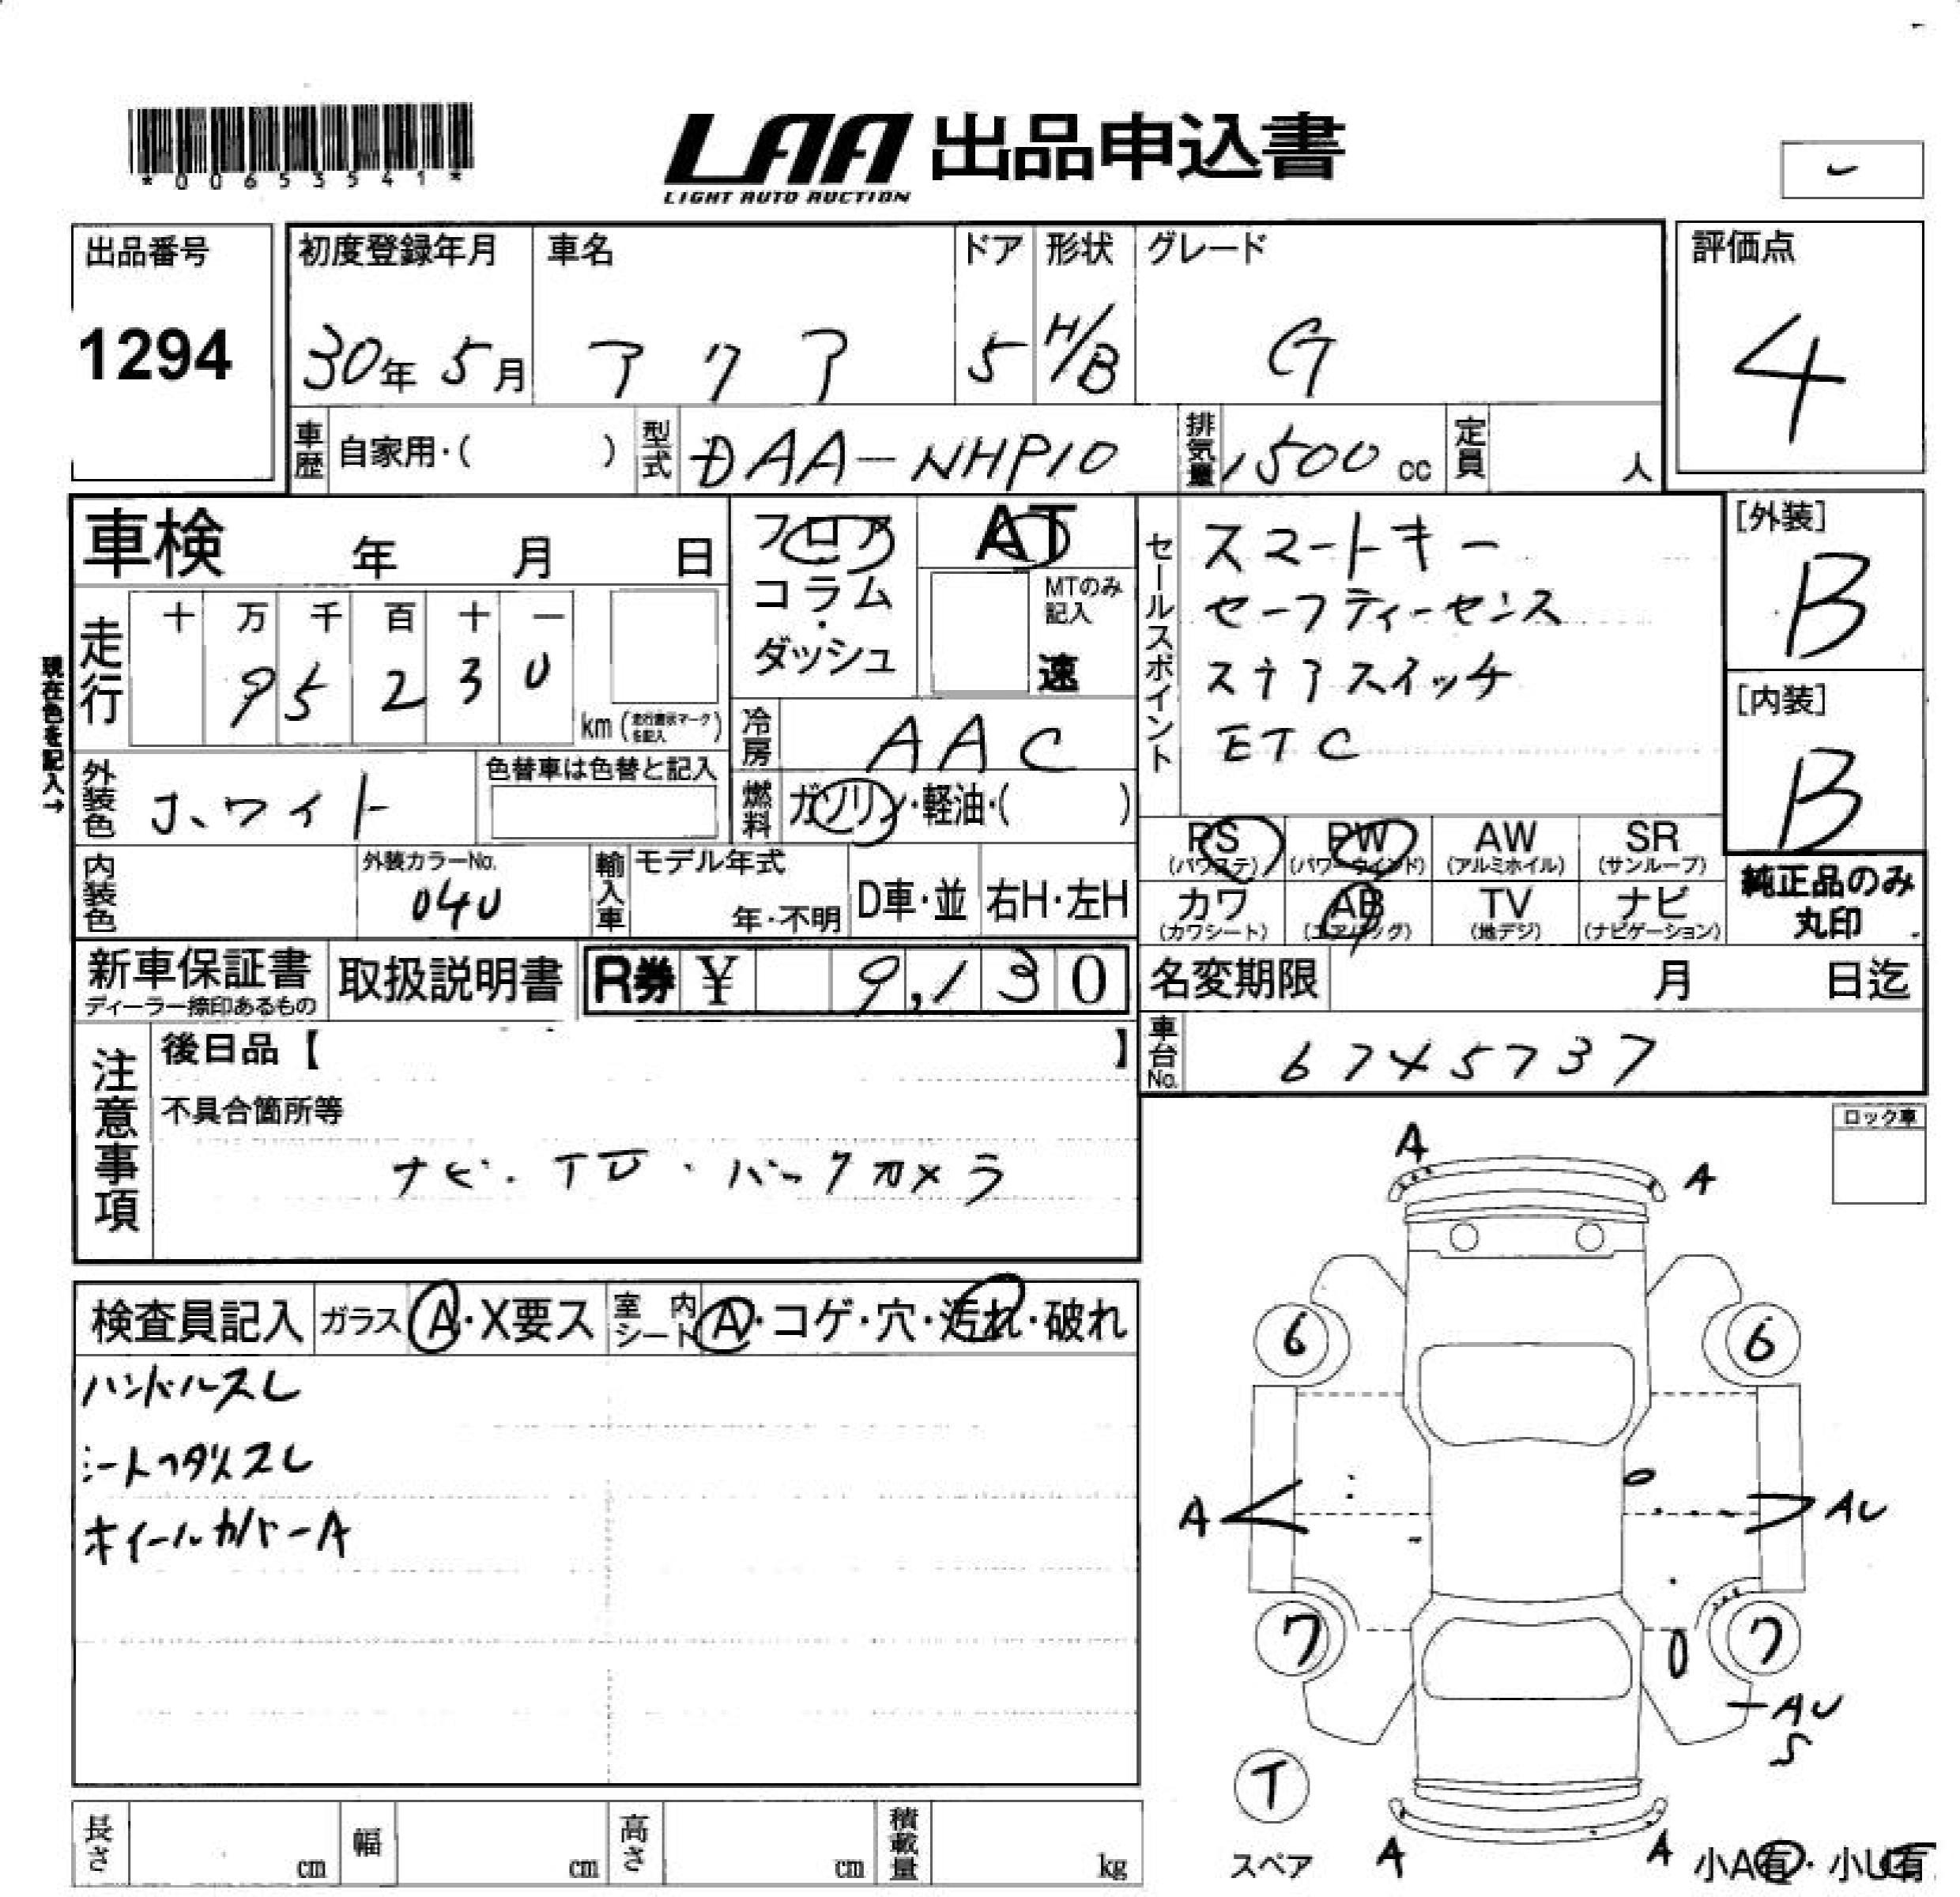 *00653541*
LAA 出品申込書
LIGHT AUTO AUCTION
出品番号
1294
初度登録年月
30年 5月
車名
アクア
ドア
5
形状
H/B
グレード
G
評価点
4
車歴 自家用・( )
型式 DAA-NHP10
排気量 1500 cc
定員 人
車検 年 月 日
フロア・コラム・ダッシュ
AT
MTのみ記入
速
セールスポイント
スマートキー
セーフティーセンス
ステアスイッチ
ETC
[外装]
B
[内装]
B
現在色を記入→
走行
十 万 千 百 十 一
9 5 2 3 0
km
冷房 AAC
外装色 ホワイト
色替車は色替と記入
燃料 ガソリン・軽油・( )
PS (パワステ)
PW (パワーウインド)
AW (アルミホイル)
SR (サンルーフ)
カワ (カワシート)
AB (エアバッグ)
TV (地デジ)
ナビ (ナビゲーション)
純正品のみ丸印
内装色
外装カラーNo.
040
輸入車
モデル年式
年・不明
D車・並
右H・左H
新車保証書
ディーラー捺印あるもの
取扱説明書
R券 ¥ 9,130
名変期限 月 日迄
車台No. 6745737
注意事項
後日品【 】
不具合箇所等
ナビ・TV・バックカメラ
ロック車
検査員記入
ガラス A・X要ス
室内シート A・コゲ・穴・汚れ・破れ
ハンドルスレ
ホイールカバーA
A
A
6
6
A
AU
7
7
AU
S
T
スペア
A
A
小A有・小U有
長さ cm
幅 cm
高さ cm
積載量 kg